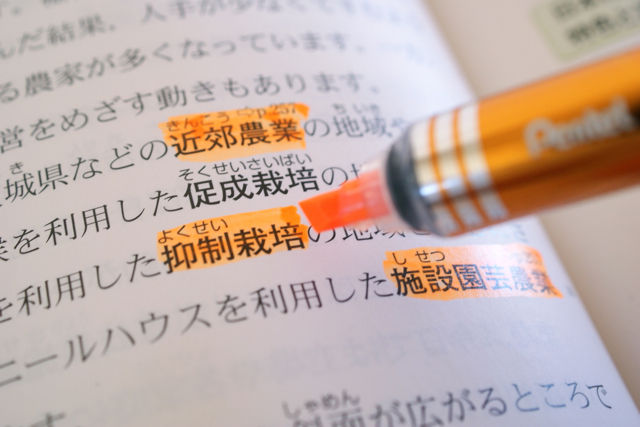 んだ結果，人手が少な
る農家が多くなっています．
営をめざす動きもあります．
きんこう ⇨p.257 ちいき
城県などの近郊農業の地域や
そくせいさいばい
を利用した促成栽培の地
よくせい
を利用した抑制栽培の地域
しせつ
ニールハウスを利用した施設園芸農業
しゃめん
斜面が広がるところで
Pentel